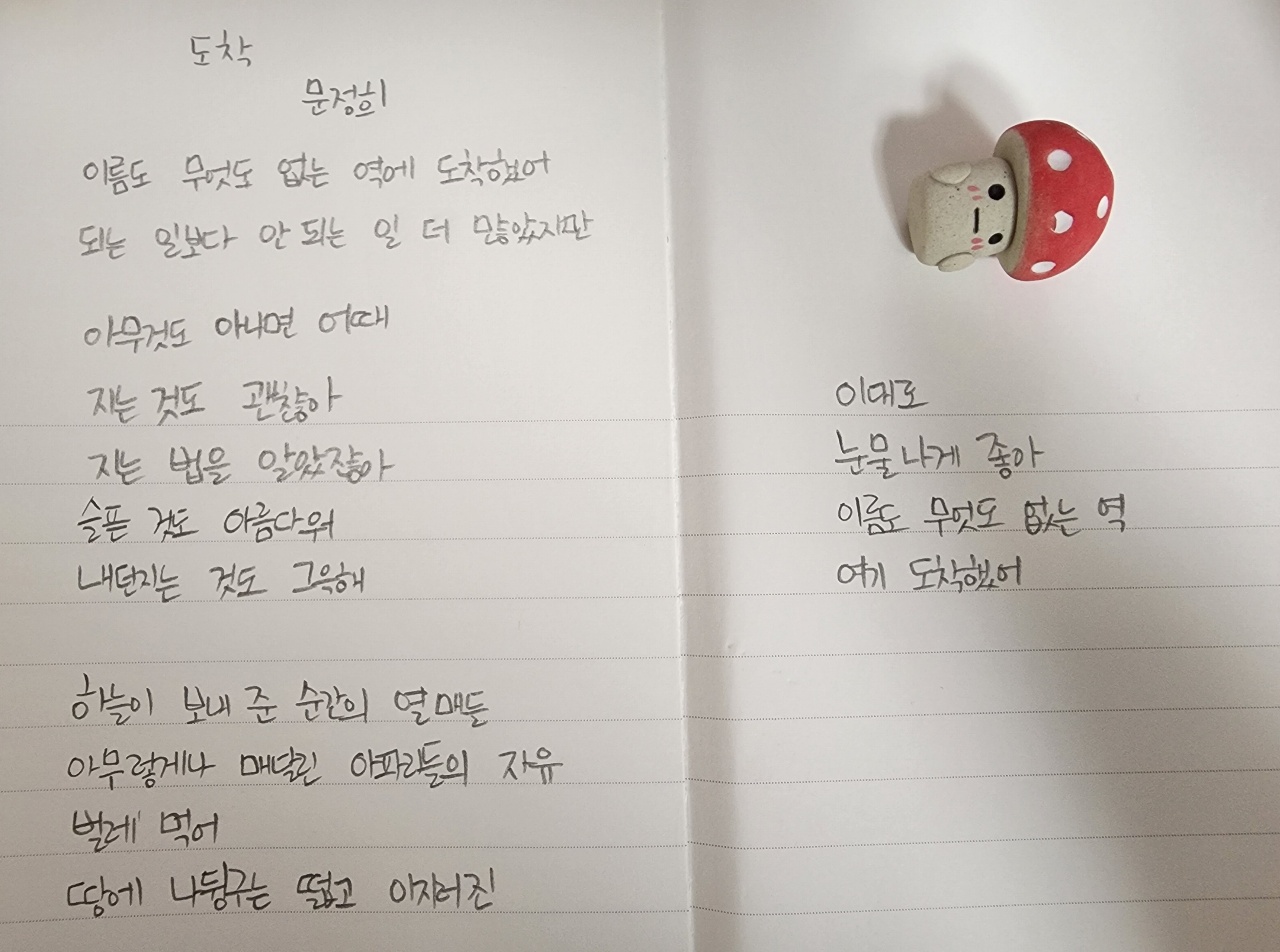 도착
문정희
이름도 무엇도 없는 역에 도착했어
되는 일보다 안 되는 일 더 많았지만
아무것도 아니면 어때
지는 것도 괜찮아
지는 법을 알았잖아
슬픈 것도 아름다워
내던지는 것도 그윽해
하늘이 보내 준 순간의 열매들
아무렇게나 매달린 이파리들의 자유
벌레 먹어
땅에 나뒹구는 떫고 이지러진
이대로
눈물나게 좋아
이름도 무엇도 없는 역
여기 도착했어